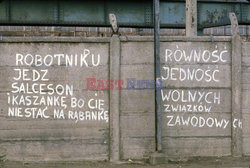 ROBOTNIKU
JEDZ
SALCESON
I KASZANKĘ BO CIĘ
NIE STAĆ NA RĄBANKĘ
RÓWNOŚĆ
JEDNOŚĆ
WOLNYCH
ZWIĄZKÓW
ZAWODOWYCH